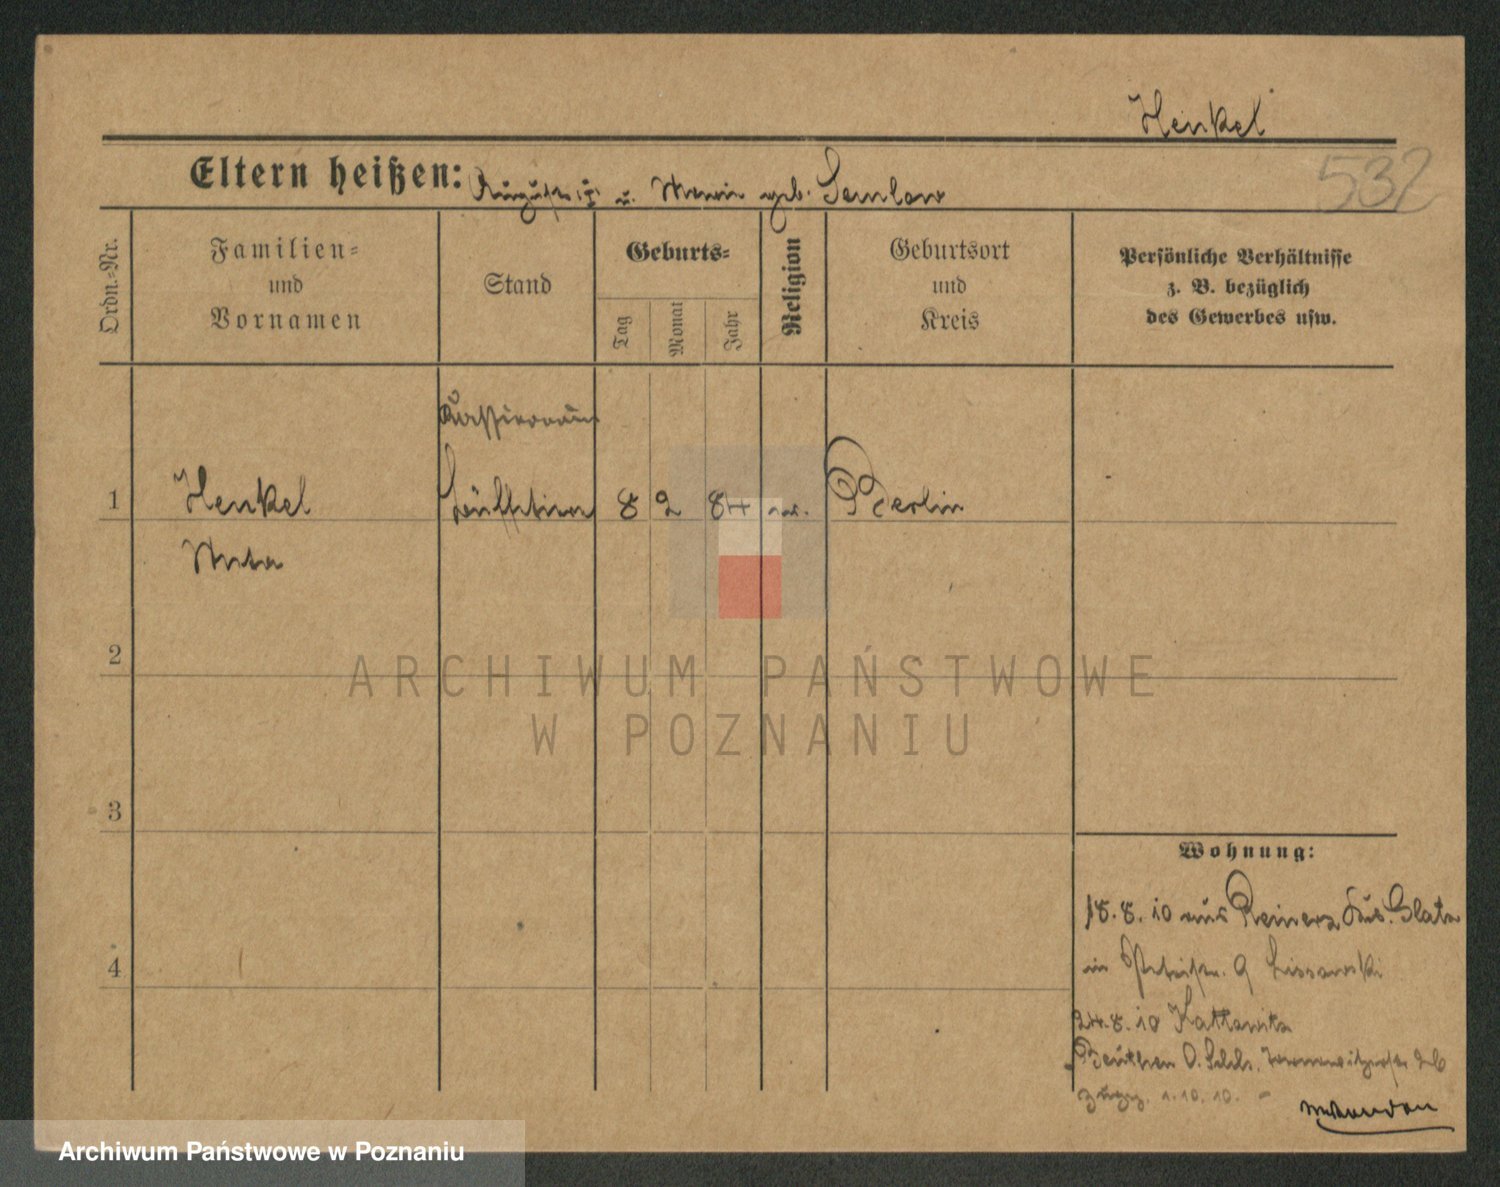 Henkel
532
Eltern heißen: August u. Marie geb. Semlow
Ordn.-Nr.
Familien-
und
Vornamen
Stand
Geburts-
Tag
Monat
Jahr
Religion
Geburtsort
und
Kreis
Persönliche Verhältnisse
z. B. bezüglich
des Gewerbes usw.
1 Henkel 8 2 84 Berlin
2
3
4
Wohnung:
18.8.10 aus Reinerz Glatz
in 9 Lissowski
24.8.10 Kattowitz
Beuthen O. Schls.
zugz. 1.10.10.
ARCHIWUM PAŃSTWOWE
W POZNANIU
Archiwum Państwowe w Poznaniu